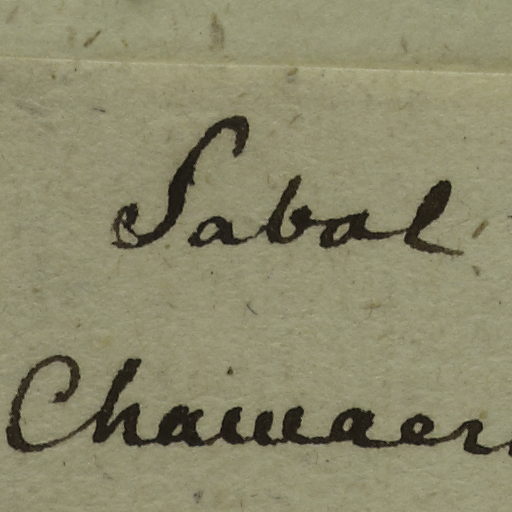 Sabal
Chamaer